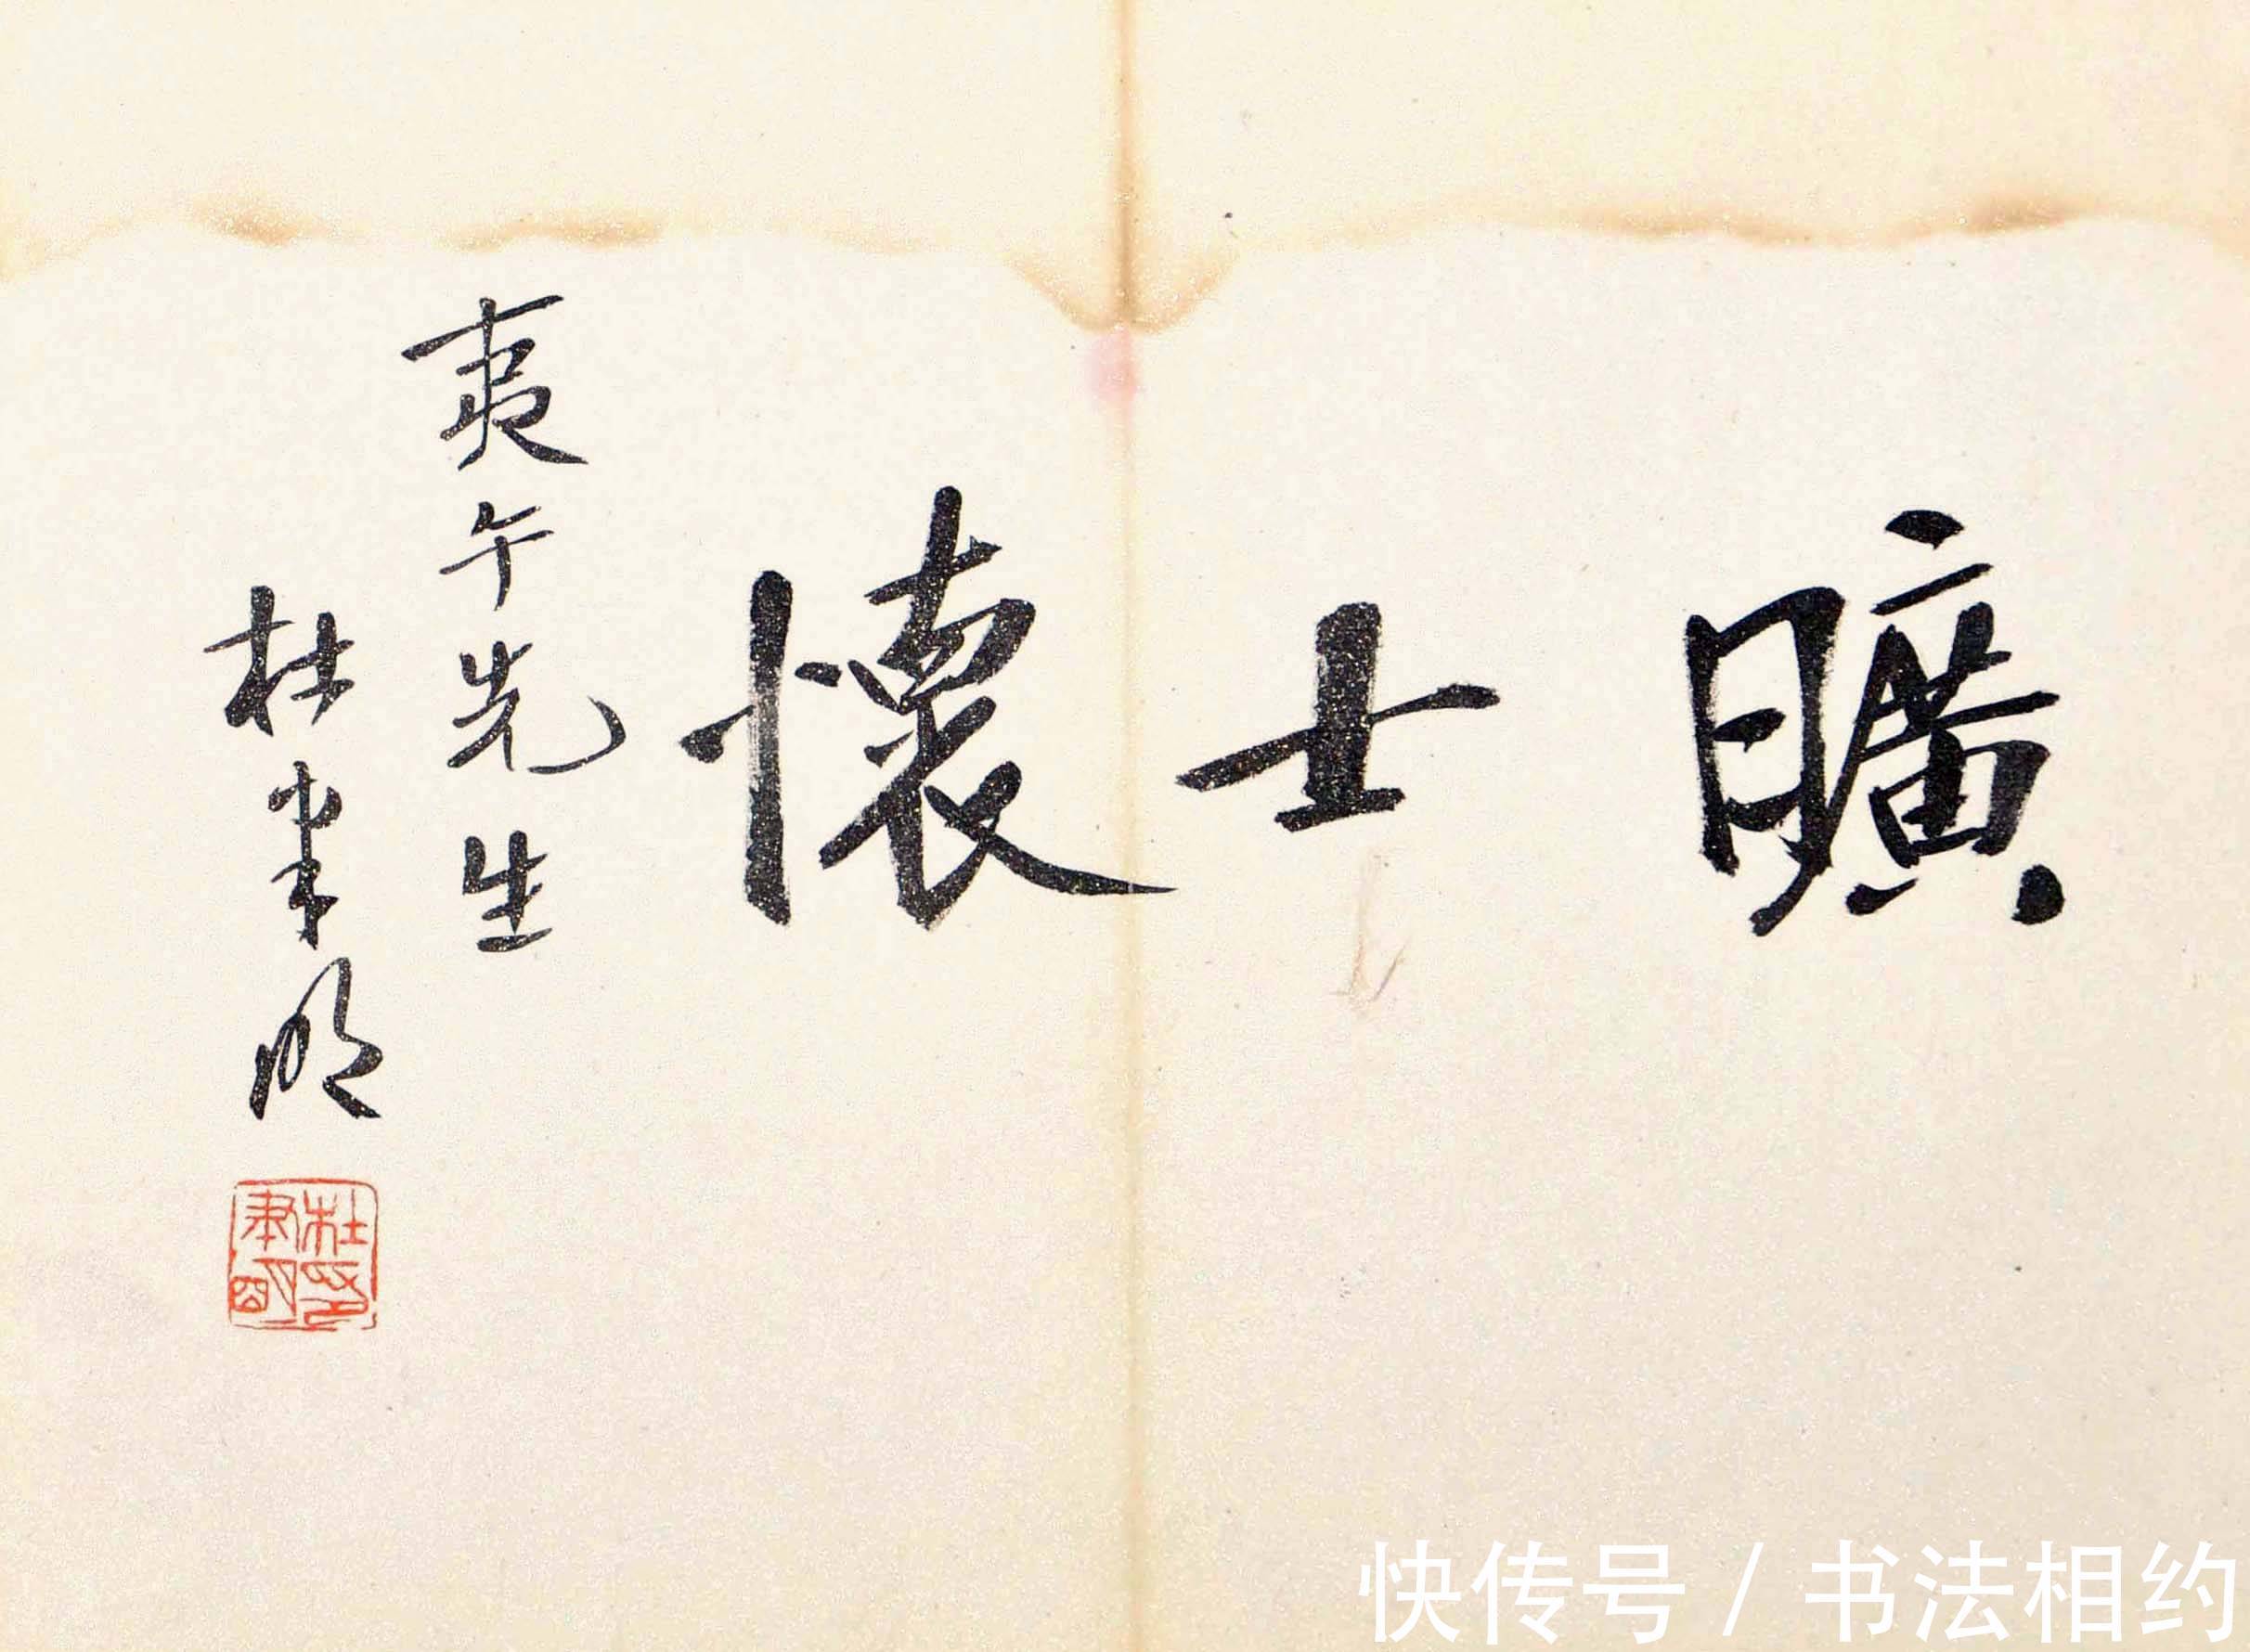 曠士懷
夷午先生
杜聿明
杜聿明印
快传号/书法相约